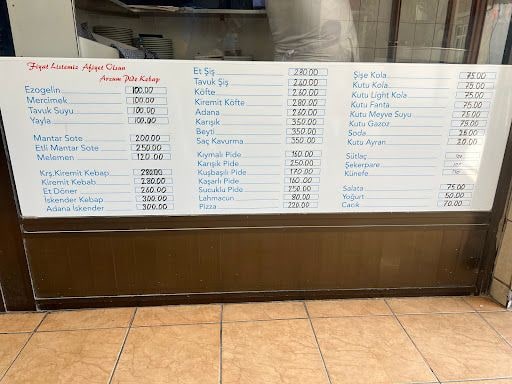 Fiyat Listemiz Afiyet Olsun
Arzum Pide Kebap
Ezogelin 100.00
Mercimek 100.00
Tavuk Suyu 100.00
Yayla 100.00
Mantar Sote 200.00
Etli Mantar Sote 250.00
Melemen 120.00
Krş.Kiremit Kebap 280.00
Kiremit Kebab 280.00
Et Döner 260.00
İskender Kebap 300.00
Adana İskender 300.00
Et Şiş 280.00
Tavuk Şiş 260.00
Köfte 260.00
Kiremit Köfte 280.00
Adana 260.00
Karışık 350.00
Beyti 350.00
Saç Kavurma 350.00
Kıymalı Pide 160.00
Karışık Pide 250.00
Kuşbaşılı Pide 170.00
Kaşarlı Pide 160.00
Sucuklu Pide 250.00
Lahmacun 80.00
Pizza 220.00
Şişe Kola 75.00
Kutu Kola 75.00
Kutu Light Kola 75.00
Kutu Fanta 75.00
Kutu Meyve Suyu 75.00
Kutu Gazoz 75.00
Soda 25.00
Kutu Ayran 30.00
Sütlaç
Şekerpare
Künefe
Salata 75.00
Yoğurt 50.00
Cacık 70.00